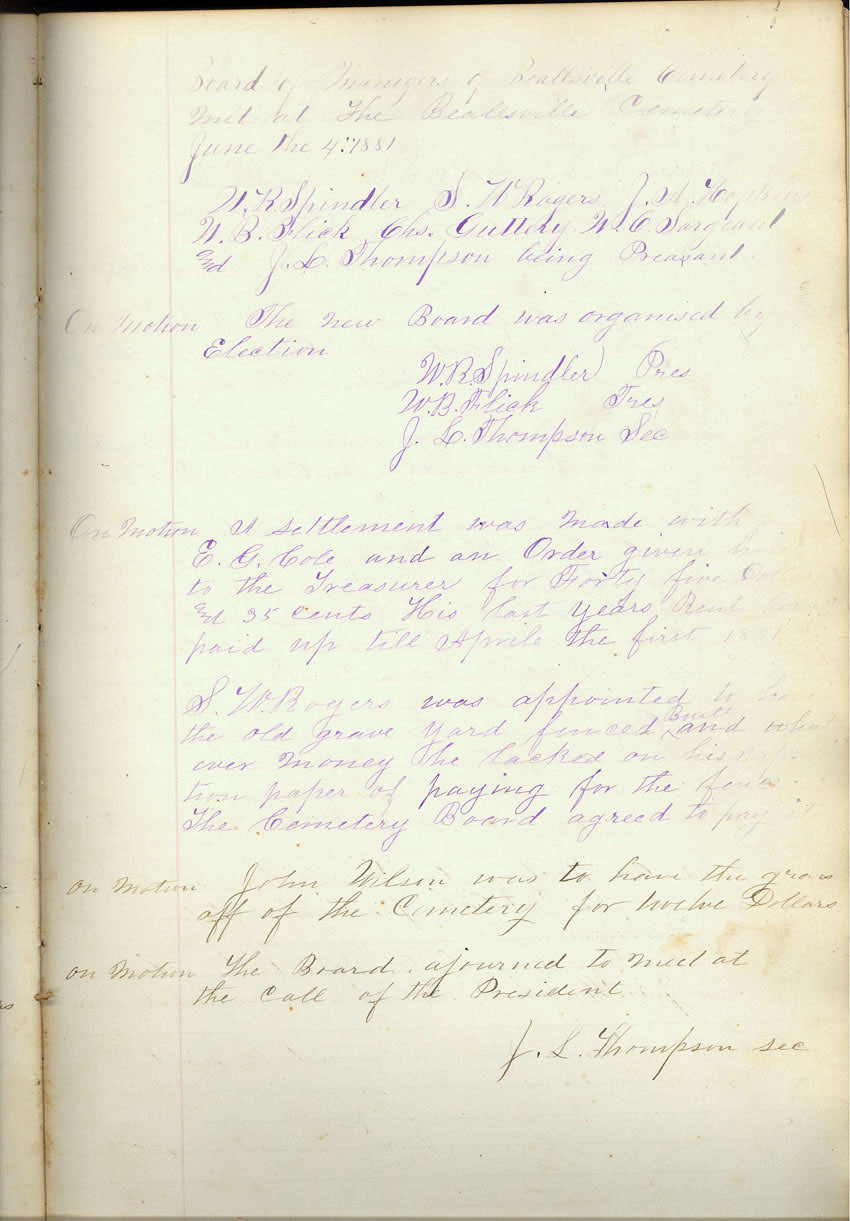 Board of Managers of Beallsville Cemetery
Met at the Beallsville Cemetery
June the 4th 1881
W.R. Spindler S. W Rogers J. A. Hopkins
W. B. Flick Chs. Guttery W. C. Sargeant
and J. L. Thompson being Preasant.
On Motion The new Board was organised by
Election
W.R. Spindler Pres
W.B. Flick Tres
J. L. Thompson Sec
On Motion A settlement was made with
E. G. Cole and an Order given him
to the Treasurer for Forty five Dollars
and 35 cents His last years Rent being
paid up till Aprile the first 1881
S. W Rogers was appointed to have
the old grave yard fenced Built and what
ever money he lacked on his
tion paper of paying for the fence
The Cemetery Board agreed to pay it
on Motion John Wilson was to have the grass
off of the Cemetery for twelve Dollars
on Motion the Board ajourned to meet at
the call of the President
J. L. Thompson sec